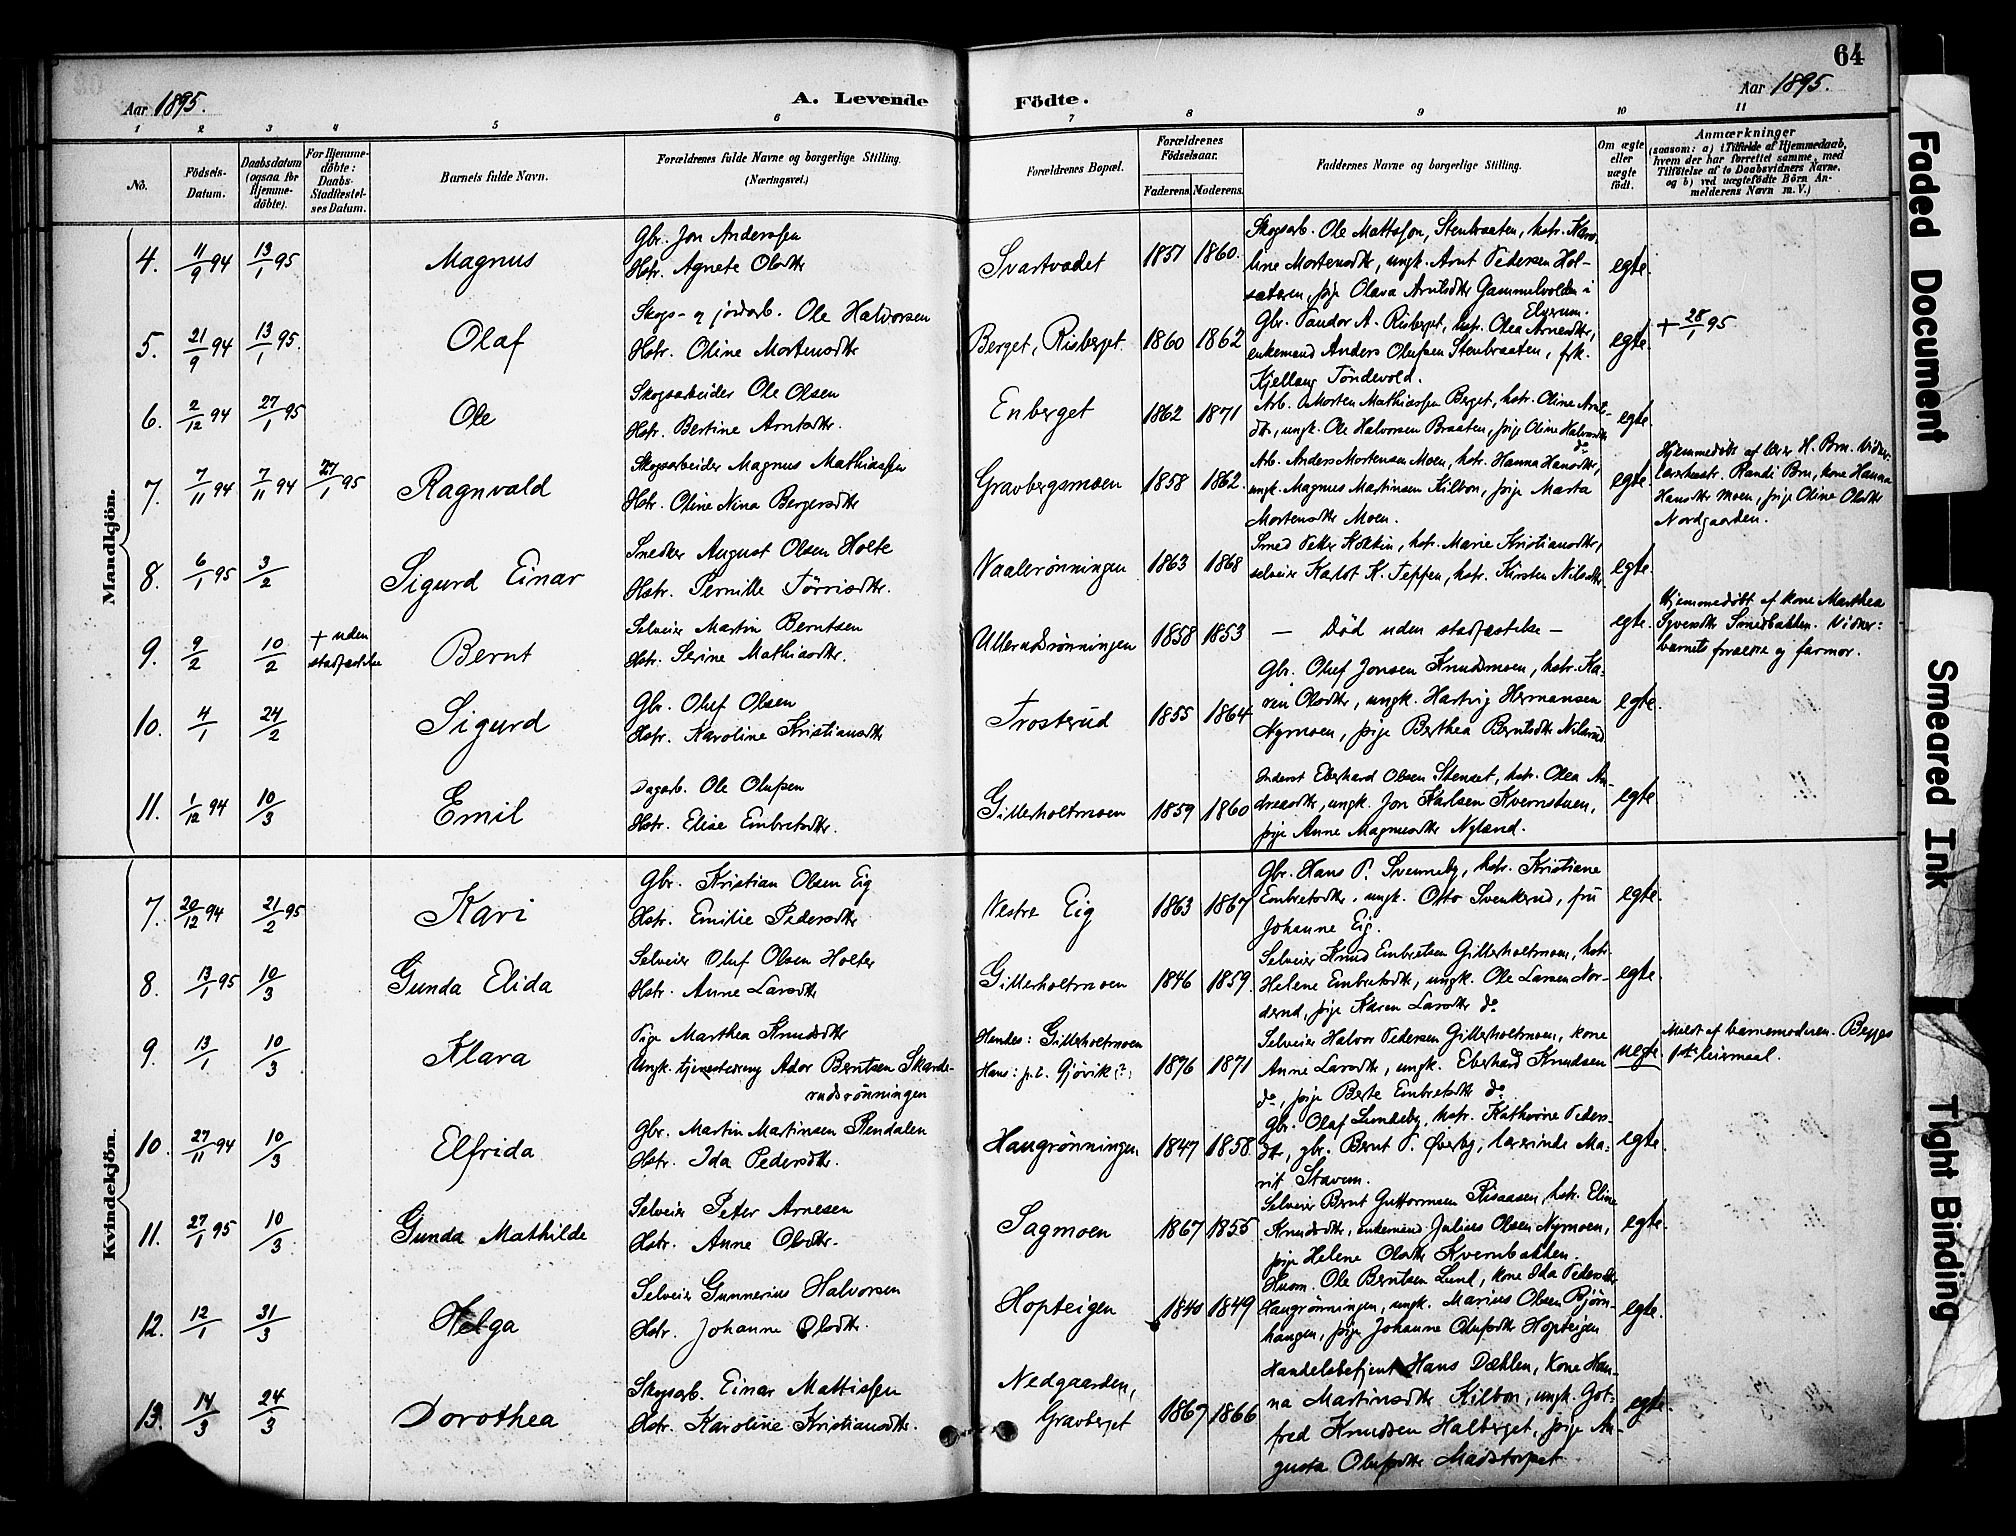 64
Aar 1895.
A. Levende
Födte.
Aar 1895.
1 2 3 4 5 6 7 8 9 10 11
No.
Födsels-Datum.
Daabsdatum (ogsaa for Hjemme-döbte).
For Hjemme-döbte: Daabs-Stadfæstel-ses Datum.
Barnets fulde Navn.
Forældrenes fulde Navne og borgerlige Stilling. (Næringsvei.)
Forældrenes Bopæl.
Forældrenes Födselsaar.
Faderens. Moderens.
Faddernes Navne og borgerlige Stilling.
Om ægte eller uægte födt.
Anmærkninger
(saasom: a) i Tilfælde af Hjemmedaab, hvem der har forrettet samme, med Tilföielse af to Daabsvidners Navne, og b) ved uægtefödte Börn An-melderens Navn m. V.)
Mandkjön.
4. 11/9 94 13/1 95 Magnus
Gbr. Jon Anderssen
Hstr. Agnete Olsdtr
Svartvadet 1851 1860.
Skogsarb. Ole Mattisson, Stenbraaten, hstr. Karo-
line Mortensdtr, ungk. Arnt Pedersen Hol-
sæteren, pige Olava Arntsdtr Gammelvolden i
Elverum.
egte.
5. 21/9 94 13/1 95. Olaf
Skogs- og jordarb. Ole Halvorsen
Hstr. Oline Mortensdtr
Berget, Risberget. 1860 1862
Gbr. Pauder A. Risberget, hstr. Olea Arnesdtr,
enkemand Anders Olufsen Stenbraaten, frk.
Kjellaug Töndevold.
egte. + 28/1 95
6. 2/12 94 27/1 95 Ole
Skogsarbeider Ole Olsen
Hstr. Bertine Arntsdtr.
Enberget 1862 1871
Arb. Morten Mathiassen Berget, hstr. Oline Arnt-
dtr, ungk. Ole Halvorsen Braaten, pige Oline Halvorsdtr
do
egte.
7. 7/11 94 7/11 94 27/1 95 Ragnvald
Skogsarbeider Magnus Mathiassen
Hstr. Oline Nina Bergersdtr
Gravbergsmoen 1858 1862.
Arb. Anders Mortensen Moen, hstr. Hanna Hansdtr,
ungk. Magnus Martinsen Kilbon, pige Marta
Mortensdtr Moen.
egte.
Hjemmedöbt af lærer H. Brn. Vidner:
lærerhustr. Randi Brn, kone Hanna
Hansdtr Moen, pige Oline Olsdtr
Nordgaarden.
8. 6/1 95 3/2 Sigurd Einar
Snedker August Olsen Holte
Hstr. Pernille Törrisdtr.
Naalerönningen 1863 1868
Smed Petter Kolkin, hstr. Marie Kristiansdtr,
selveier Karlot K. Teppen, hstr. Kirsten Nilsdtr
egte.
9. 9/2 10/2 + uden stadfæstelse Bernt
Selveier Martin Berntsen
Hstr. Serine Mathiasdtr.
Ullerudsrönningen 1858 1853
— Död uden stadfæstelse —
egte.
Hjemmedöbt af kone Marthea
Syversdtr Smedbakken. Vidner:
barnets forældre og farmor.
10. 4/1 24/2 Sigurd
Gbr. Oluf Olsen
Hstr. Karoline Kristiansdtr
Trosterud 1855 1864
Gbr. Oluf Jonsen Knudsmoen, hstr. Ka-
ren Olsdtr, ungk. Hartvig Hermansen
Nymoen, pige Berthea Berntsdtr Nilsrud
egte.
11. 1/12 94 10/3 Emil
Dagarb. Ole Olufsen
Hstr. Elise Embretsdtr.
Gillerholtmoen 1859 1860
Inderst Eberhard Olsen Stenset, hstr. Olea An-
dreasdtr, ungk. Jon Karlsen Kvernstuen,
pige Anne Magnusdtr Nyland.
egte.
Kvindekjön.
7. 20/12 94 21/2 95 Kari
Gbr. Kristian Olsen Eig
Hstr. Emilie Pedersdtr
Vestre Eig 1863 1867
Gbr. Hans P. Svenneby, hstr. Kristiane
Embretsdtr, ungk. Otto Svenkerud, frk
Johanne Eig.
egte.
8. 13/1 95 10/3 Gunda Elida
Selveier Oluf Olsen Holter
Hstr. Anne Larsdtr
Gillerholtmoen 1846 1859.
Selveier Knud Embretsen Gillerholtmoen, hstr.
Helene Embretsdtr, ungk. Ole Larsen Nor-
derud, pige Karen Larsdtr do
egte.
9. 13/1 10/3 Klara
Pige Marthea Knudsdtr
Ungk. tjenestedreng Ador Berntsen Skarde-
rudsrönningen
Hendes: Gillerholtmoen
Hans: p. t. Gjövik (?)
1876 1871
Selveier Halvor Pedersen Gillerholtmoen, kone
Anne Larsdtr, ungk. Eberhard Knudsen
do, pige Berte Embretsdtr do
uegte.
Meldt af barnemoderen. Begges
1ste leiermaal.
10. 27/11 94 10/3 Elfrida
Gbr. Martin Martinsen Stendalen
Hstr. Ida Pedersdtr.
Haugrönningen 1847 1858.
Gbr. Olaf Lundeby, hstr. Kathrine Peders-
dtr, gbr. Bernt P. Överby, lærerinde Ma-
rit Stavem.
egte.
11. 27/1 95 10/3 Gunda Mathilde
Selveier Peter Arnesen
Hstr. Anne Olsdtr.
Sagmoen 1867 1855
Selveier Bernt Guttormsen Risaasen, hstr. Eline
Knudsdtr, enkemand Julius Olsen Nymoen,
pige Helene Olsdtr Kvernbakken.
egte.
12. 12/1 31/3 Helga
Selveier Gunnerius Halvorsen
Hstr. Johanne Olsdtr
Hopteigen 1840 1849
Husm. Ole Berntsen Lund, kone Ida Pedersdtr
Haugrönningen, ungk. Marius Olsen Bjørn-
haugen, pige Johanne Olufsdtr Hopteigen
egte.
13. 14/3 24/3 Dorothea
Skogsarb. Einar Mattissen
Hstr. Karoline Kristiansdtr.
Nedgaarden,
Gravberget
1867 1866
Handelsbetjent Hans Dæhlen, kone Han-
na Martinsdtr Kilbon, ungk. Got-
fred Knudsen Halberget, pige Au-
gusta Olufsdtr Madstorpet
egte.
Faded Document
Smeared Ink
Tight Binding